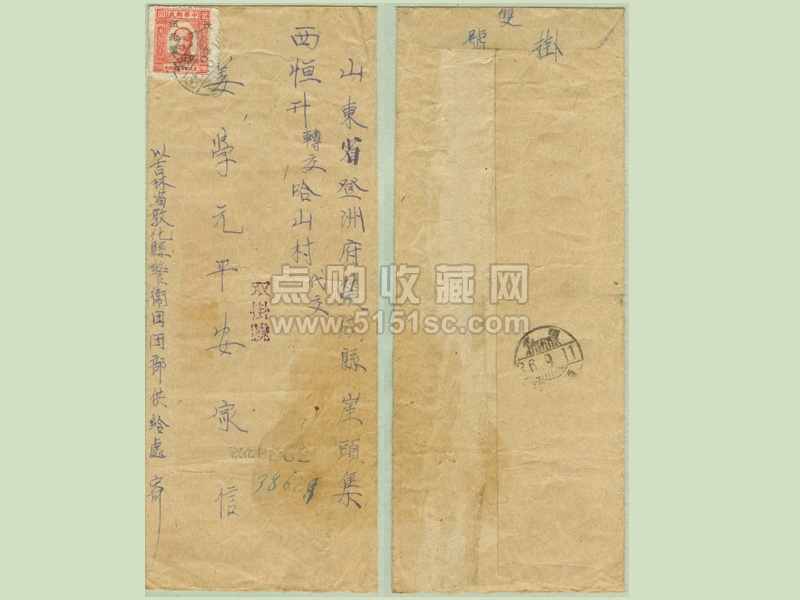 山東省登洲府榮成縣崖頭集
西恒升轉交哈山村代交
姜學元平安家信
双掛號
38629
以吉林省敦化縣警衛团团部供给處寄
雙
掛
號
36.9.11
点购收藏网
www.5151sc.com